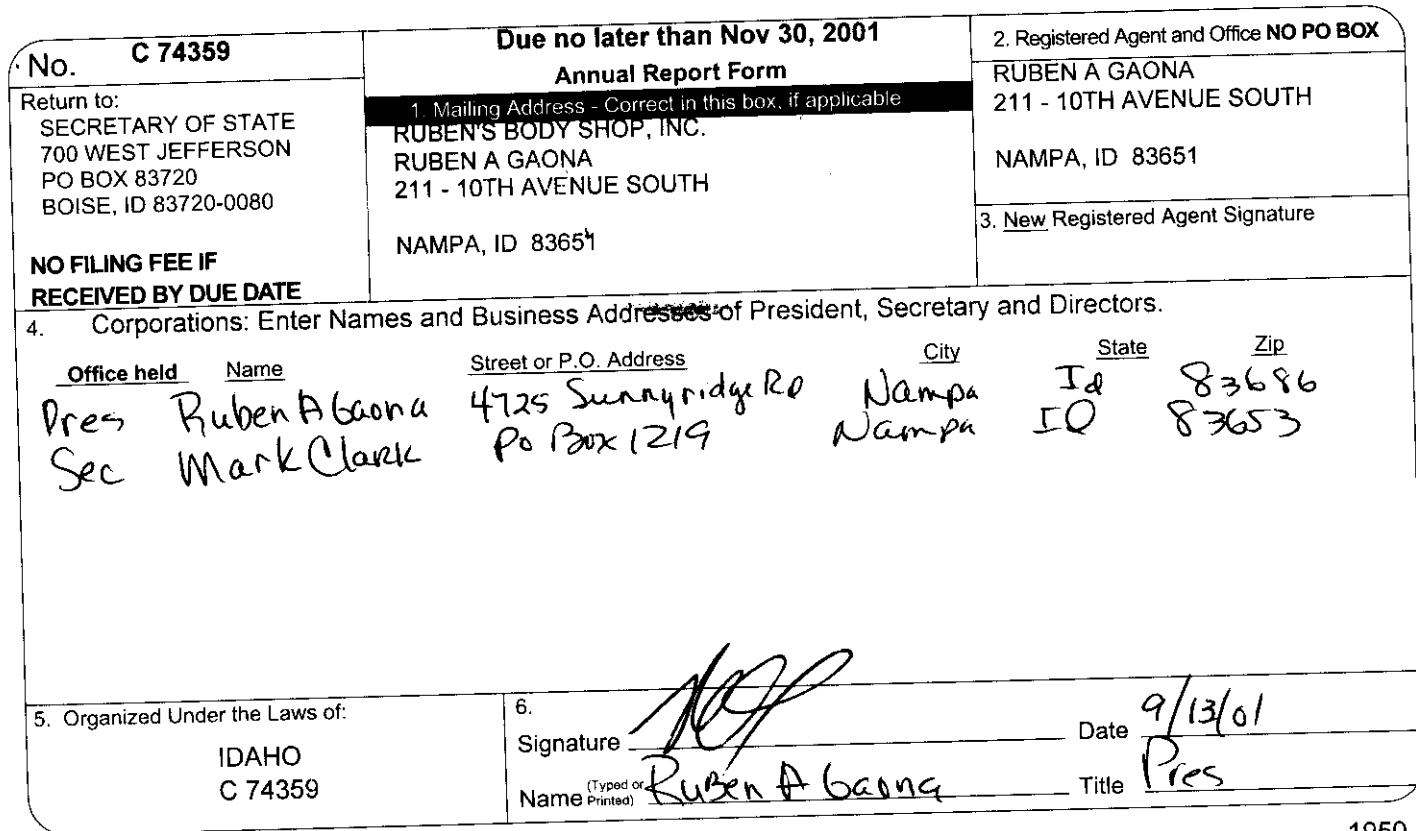 No. C 74359
Return to:
SECRETARY OF STATE
700 WEST JEFFERSON
PO BOX 83720
BOISE, ID 83720-0080
NO FILING FEE IF
RECEIVED BY DUE DATE
Due no later than Nov 30, 2001
Annual Report Form
1. Mailing Address - Correct in this box, if applicable
RUBEN'S BODY SHOP, INC.
RUBEN A GAONA
211 - 10TH AVENUE SOUTH
NAMPA, ID 83651
2. Registered Agent and Office NO PO BOX
RUBEN A GAONA
211 - 10TH AVENUE SOUTH
NAMPA, ID 83651
3. New Registered Agent Signature
4. Corporations: Enter Names and Business Addresses of President, Secretary and Directors.
Office held Name Street or P.O. Address City State Zip
Pres Ruben A Gaona 4725 Sunnyridge RD Nampa Id 83686
Sec Mark Clark Po Box 1219 Nampa ID 83653
5. Organized Under the Laws of:
IDAHO
C 74359
6.
Signature Date 9/13/01
Name (Typed or Printed) Ruben A Gaona Title Pres
1950